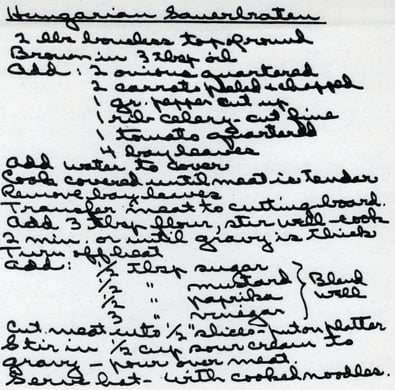 Hungarian Sauerbraten
2 lbs boneless top ground
Brown in 3 tbsp oil
Add: 2 onions quartered
2 carrots peled + chopped
1 gr. pepper cut up
1 rib celery - cut fine
1 tomato quartered
4 bay leaves
add water to cover
Cook covered until meat is tender
Remove bay leaves
Transfer meat to cutting board.
Add 3 tbsp flour, stir well - cook
2 min. or until gravy is thick
Turn off heat
add: 1/2 tbsp sugar
1/2 " mustard
1/2 " paprika
3 " vinegar
} Blend well
Cut meat into 1/2" slices - put on platter
Stir in 1/2 cup sour cream to
gravy - pour over meat.
Serve hot - with cooked noodles.